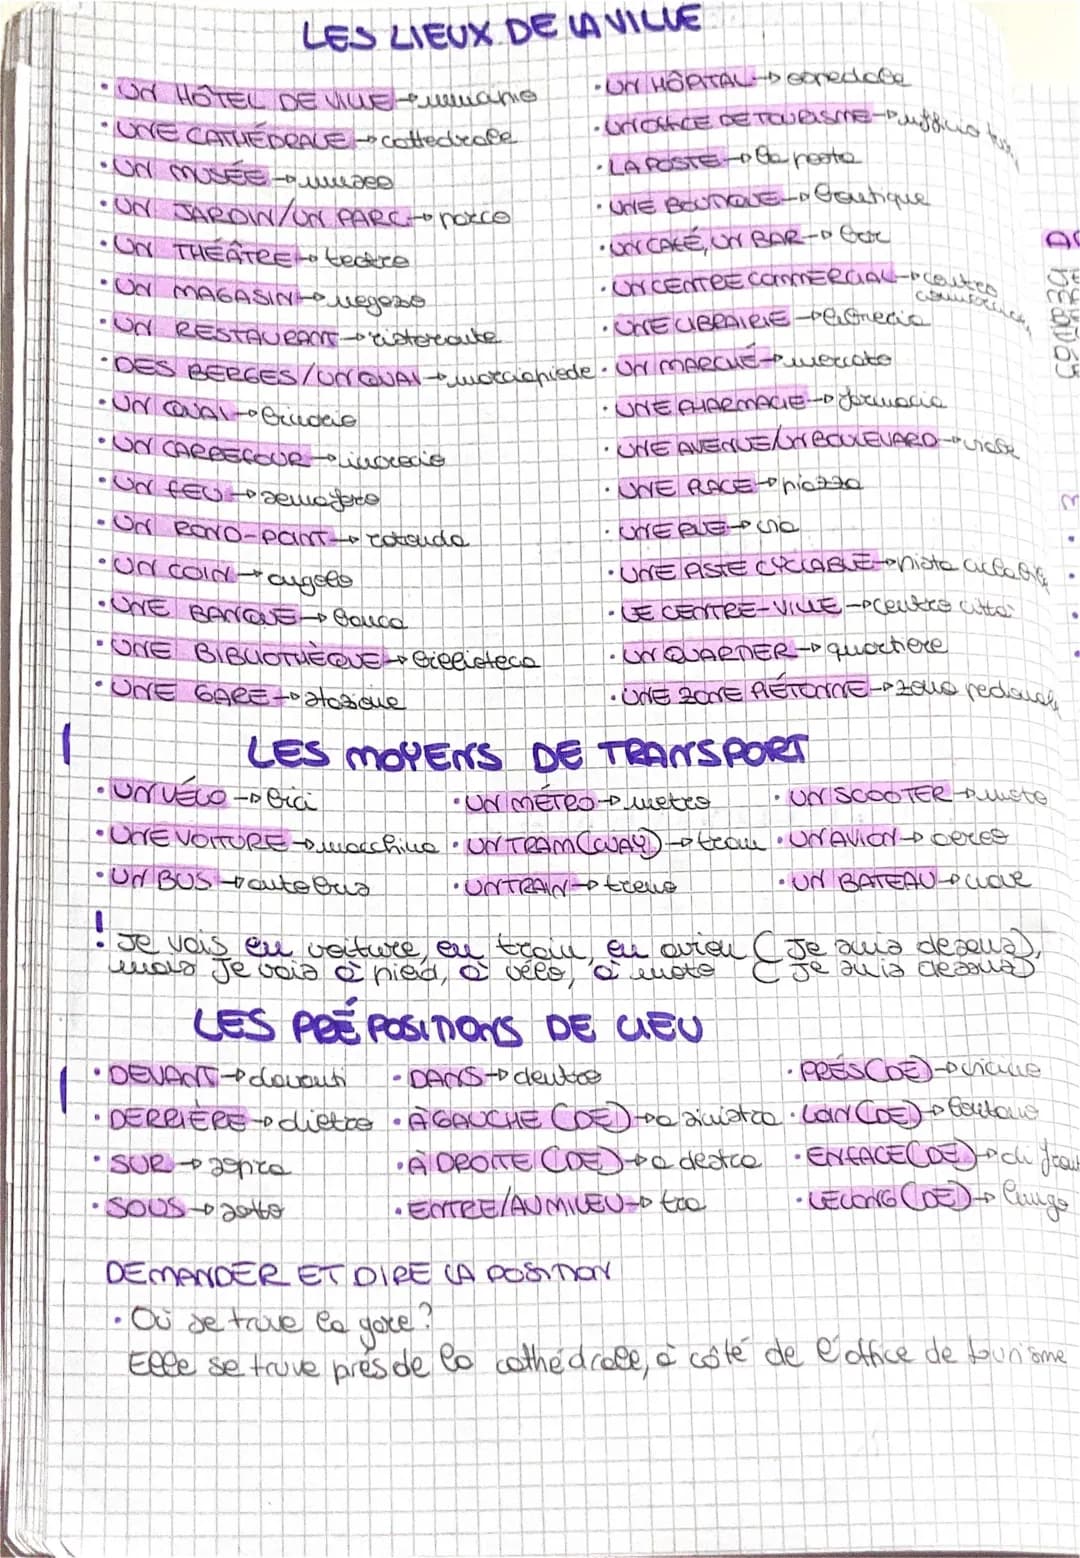 LES LIEUX DE LA VILLE
• UN HÔTEL DE VILLE →
• UNE CATHÉDRALE → cattedrale
• UN MUSÉE → museo
• UN JARDIN/UN PARC → parco
• UN THÉÂTRE → teatro
• UN MAGASIN → negozio
• UN RESTAURANT → ristorante
• DES BERGES/UN QUAI → marciapiede
• UN QUAI → binario
• UN CARREFOUR → incrocio
• UN FEU → semaforo
• UN ROND-POINT → rotonda
• UN COIN → angolo
• UNE BANQUE → banca
• UNE BIBLIOTHÈQUE → biblioteca
• UNE GARE → stazione
• UN HÔPITAL → ospedale
• UN OFFICE DE TOURISME → ufficio
• LA POSTE → la posta
• UNE BOUTIQUE → boutique
• UN CAFÉ, UN BAR → bar
• UN CENTRE COMMERCIAL → centro
• UNE LIBRAIRIE → libreria
• UN MARCHÉ → mercato
• UNE PHARMACIE → farmacia
• UNE AVENUE/UN BOULEVARD → viale
• UNE PLACE → piazza
• UNE RUE → via
• UNE PISTE CYCLABLE → pista ciclabile
• LE CENTRE-VILLE → centro città
• UN QUARTIER → quartiere
• UNE ZONE PIÉTONNE → zona
LES MOYENS DE TRANSPORT
• UN VÉLO → bici • UN MÉTRO → metro • UN SCOOTER → moto
• UNE VOITURE → macchina • UN TRAM(WAY) → tram • UN AVION → aereo
• UN BUS → autobus • UN TRAIN → treno • UN BATEAU → nave
! Je vais en voiture, en train, en avion (Je suis dessus),
mais je vais à pied, à vélo, à moto (Je suis dessus)
LES PRÉPOSITIONS DE LIEU
• DEVANT → davanti • DANS → dentro • PRÈS(DE) → vicino
• DERRIÈRE → dietro • À GAUCHE (DE) → a sinistra • LOIN (DE) → lontano
• SUR → sopra • À DROITE (DE) → a destra • EN FACE (DE) → di
• SOUS → sotto • ENTRE/AU MILIEU → tra • LE LONG (DE) → lungo
DEMANDER ET DIRE LA POSITION
• Où se truve la gare?
Elle se truve près de la cathédrale, à côté de l'office de tourisme